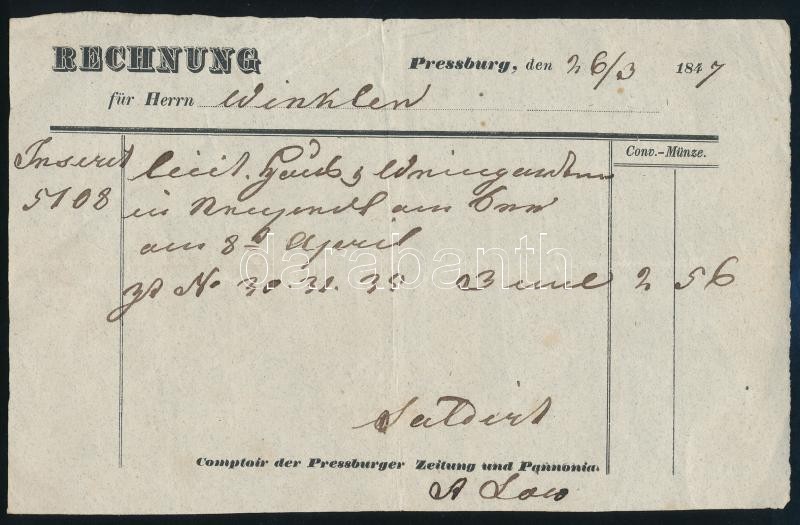 RECHNUNG
Pressburg, den 26/3 1847
für Herrn Winkler
Conv.-Münze.
Inserat
5108
licit. Haus &
in am
am 8t April
No 30. 31. 3 mal 2 56
Saldirt
Comptoir der Pressburger Zeitung und Pannonia.
A Löw
darabanth